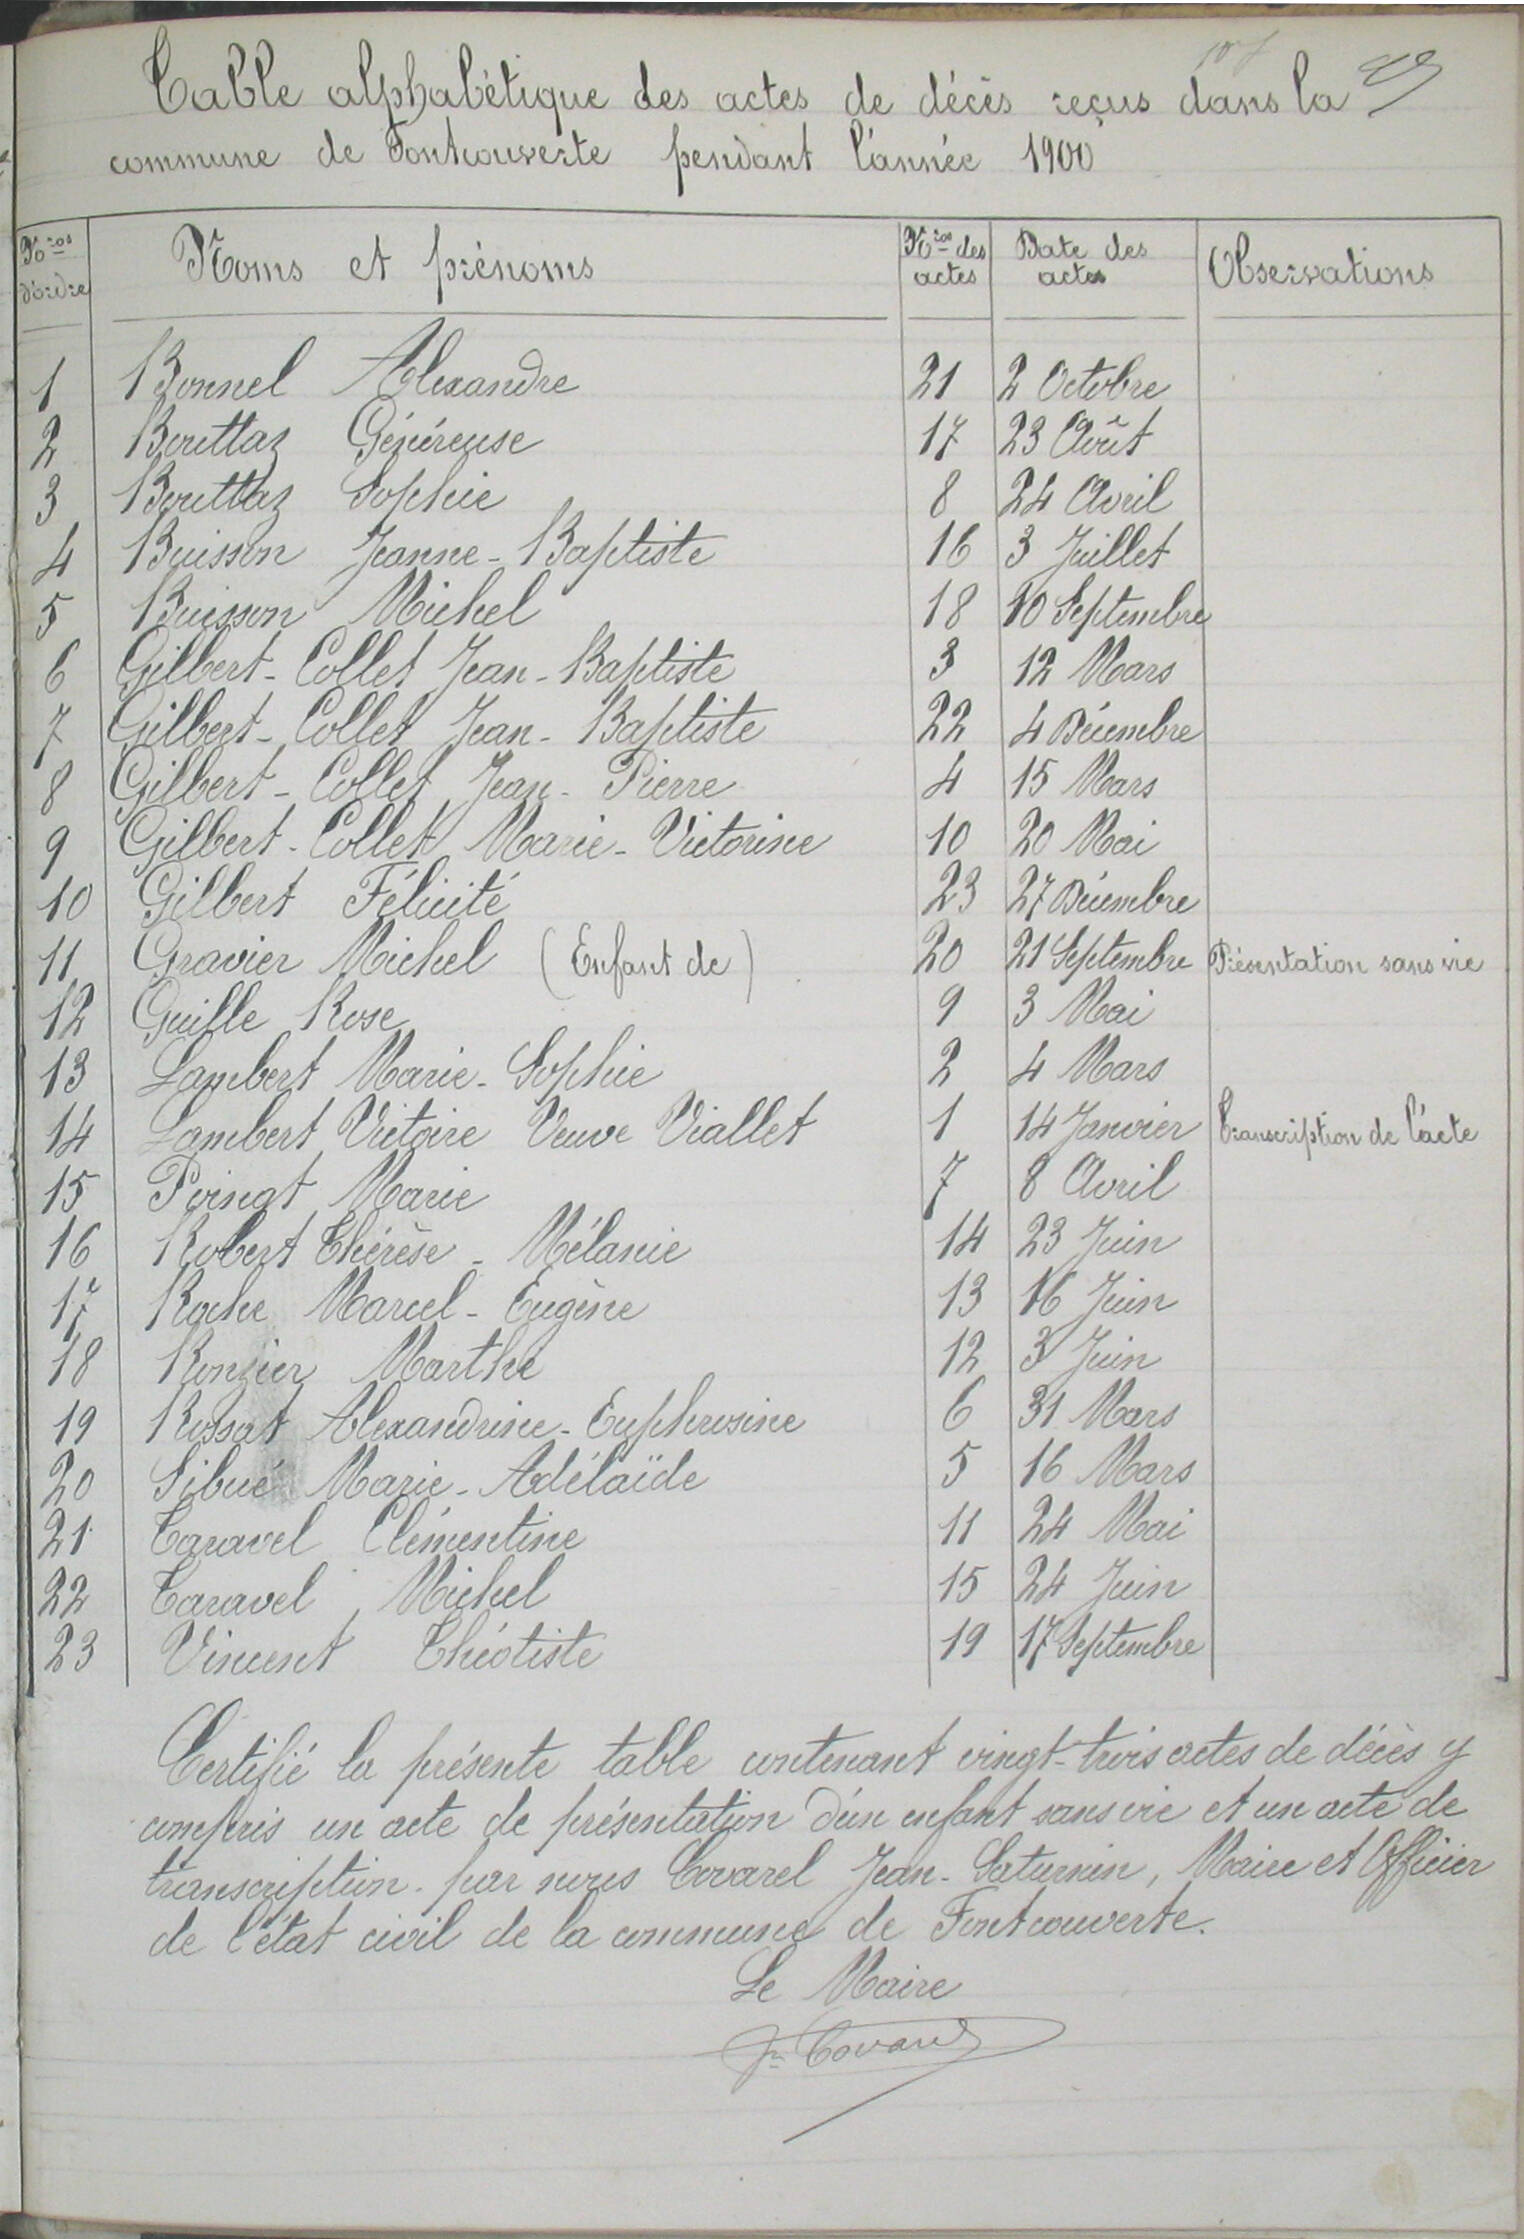 Table alphabétique des actes de décès reçus dans la
commune de Fontcouverte pendant l'année 1900
Nos d'ordre Noms et prénoms Nos des actes Date des actes Observations
1 Bonnel Alexandre 21 2 Octobre
2 Bouttaz Généreuse 17 23 Août
3 Bouttaz Sophie 8 24 Avril
4 Buisson Jeanne-Baptiste 16 3 Juillet
5 Buisson Michel 18 10 Septembre
6 Gilbert-Collet Jean-Baptiste 3 12 Mars
7 Gilbert-Collet Jean-Baptiste 22 4 Décembre
8 Gilbert-Collet Jean-Pierre 4 15 Mars
9 Gilbert-Collet Marie-Victorine 10 20 Mai
10 Gilbert Félicité 23 27 Décembre
11 Gravier Michel (Enfant de) 20 21 Septembre Présentation sans vie
12 Guille Rose 9 3 Mai
13 Lambert Marie-Sophie 2 4 Mars
14 Lambert Victoire Veuve Viallet 1 14 Janvier Transcription de l'acte
15 Poingt Marie 7 8 Avril
16 Robert Thérèse-Mélanie 14 23 Juin
17 Roche Marcel-Eugène 13 16 Juin
18 Ronzier Marthe 12 3 Juin
19 Rossat Alexandrine-Euphrosine 6 31 Mars
20 Sibué Marie-Adélaïde 5 16 Mars
21 Taravel Clémentine 11 24 Mai
22 Taravel Michel 15 24 Juin
23 Vincent Théotiste 19 17 Septembre
Certifié la présente table contenant vingt-trois actes de décès y
compris un acte de présentation d'un enfant sans vie et un acte de
transcription. par nous Covarel Jean-Saturnin, Maire et Officier
de l'état civil de la commune de Fontcouverte.
Le Maire
Jn Covarel